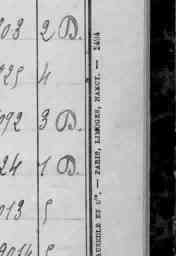 03 2 D.
25 4
092 3 D.
24 1 D.
013 5
9014 5
ET Cie, — PARIS, LIMOGES, NANCY. — 2404